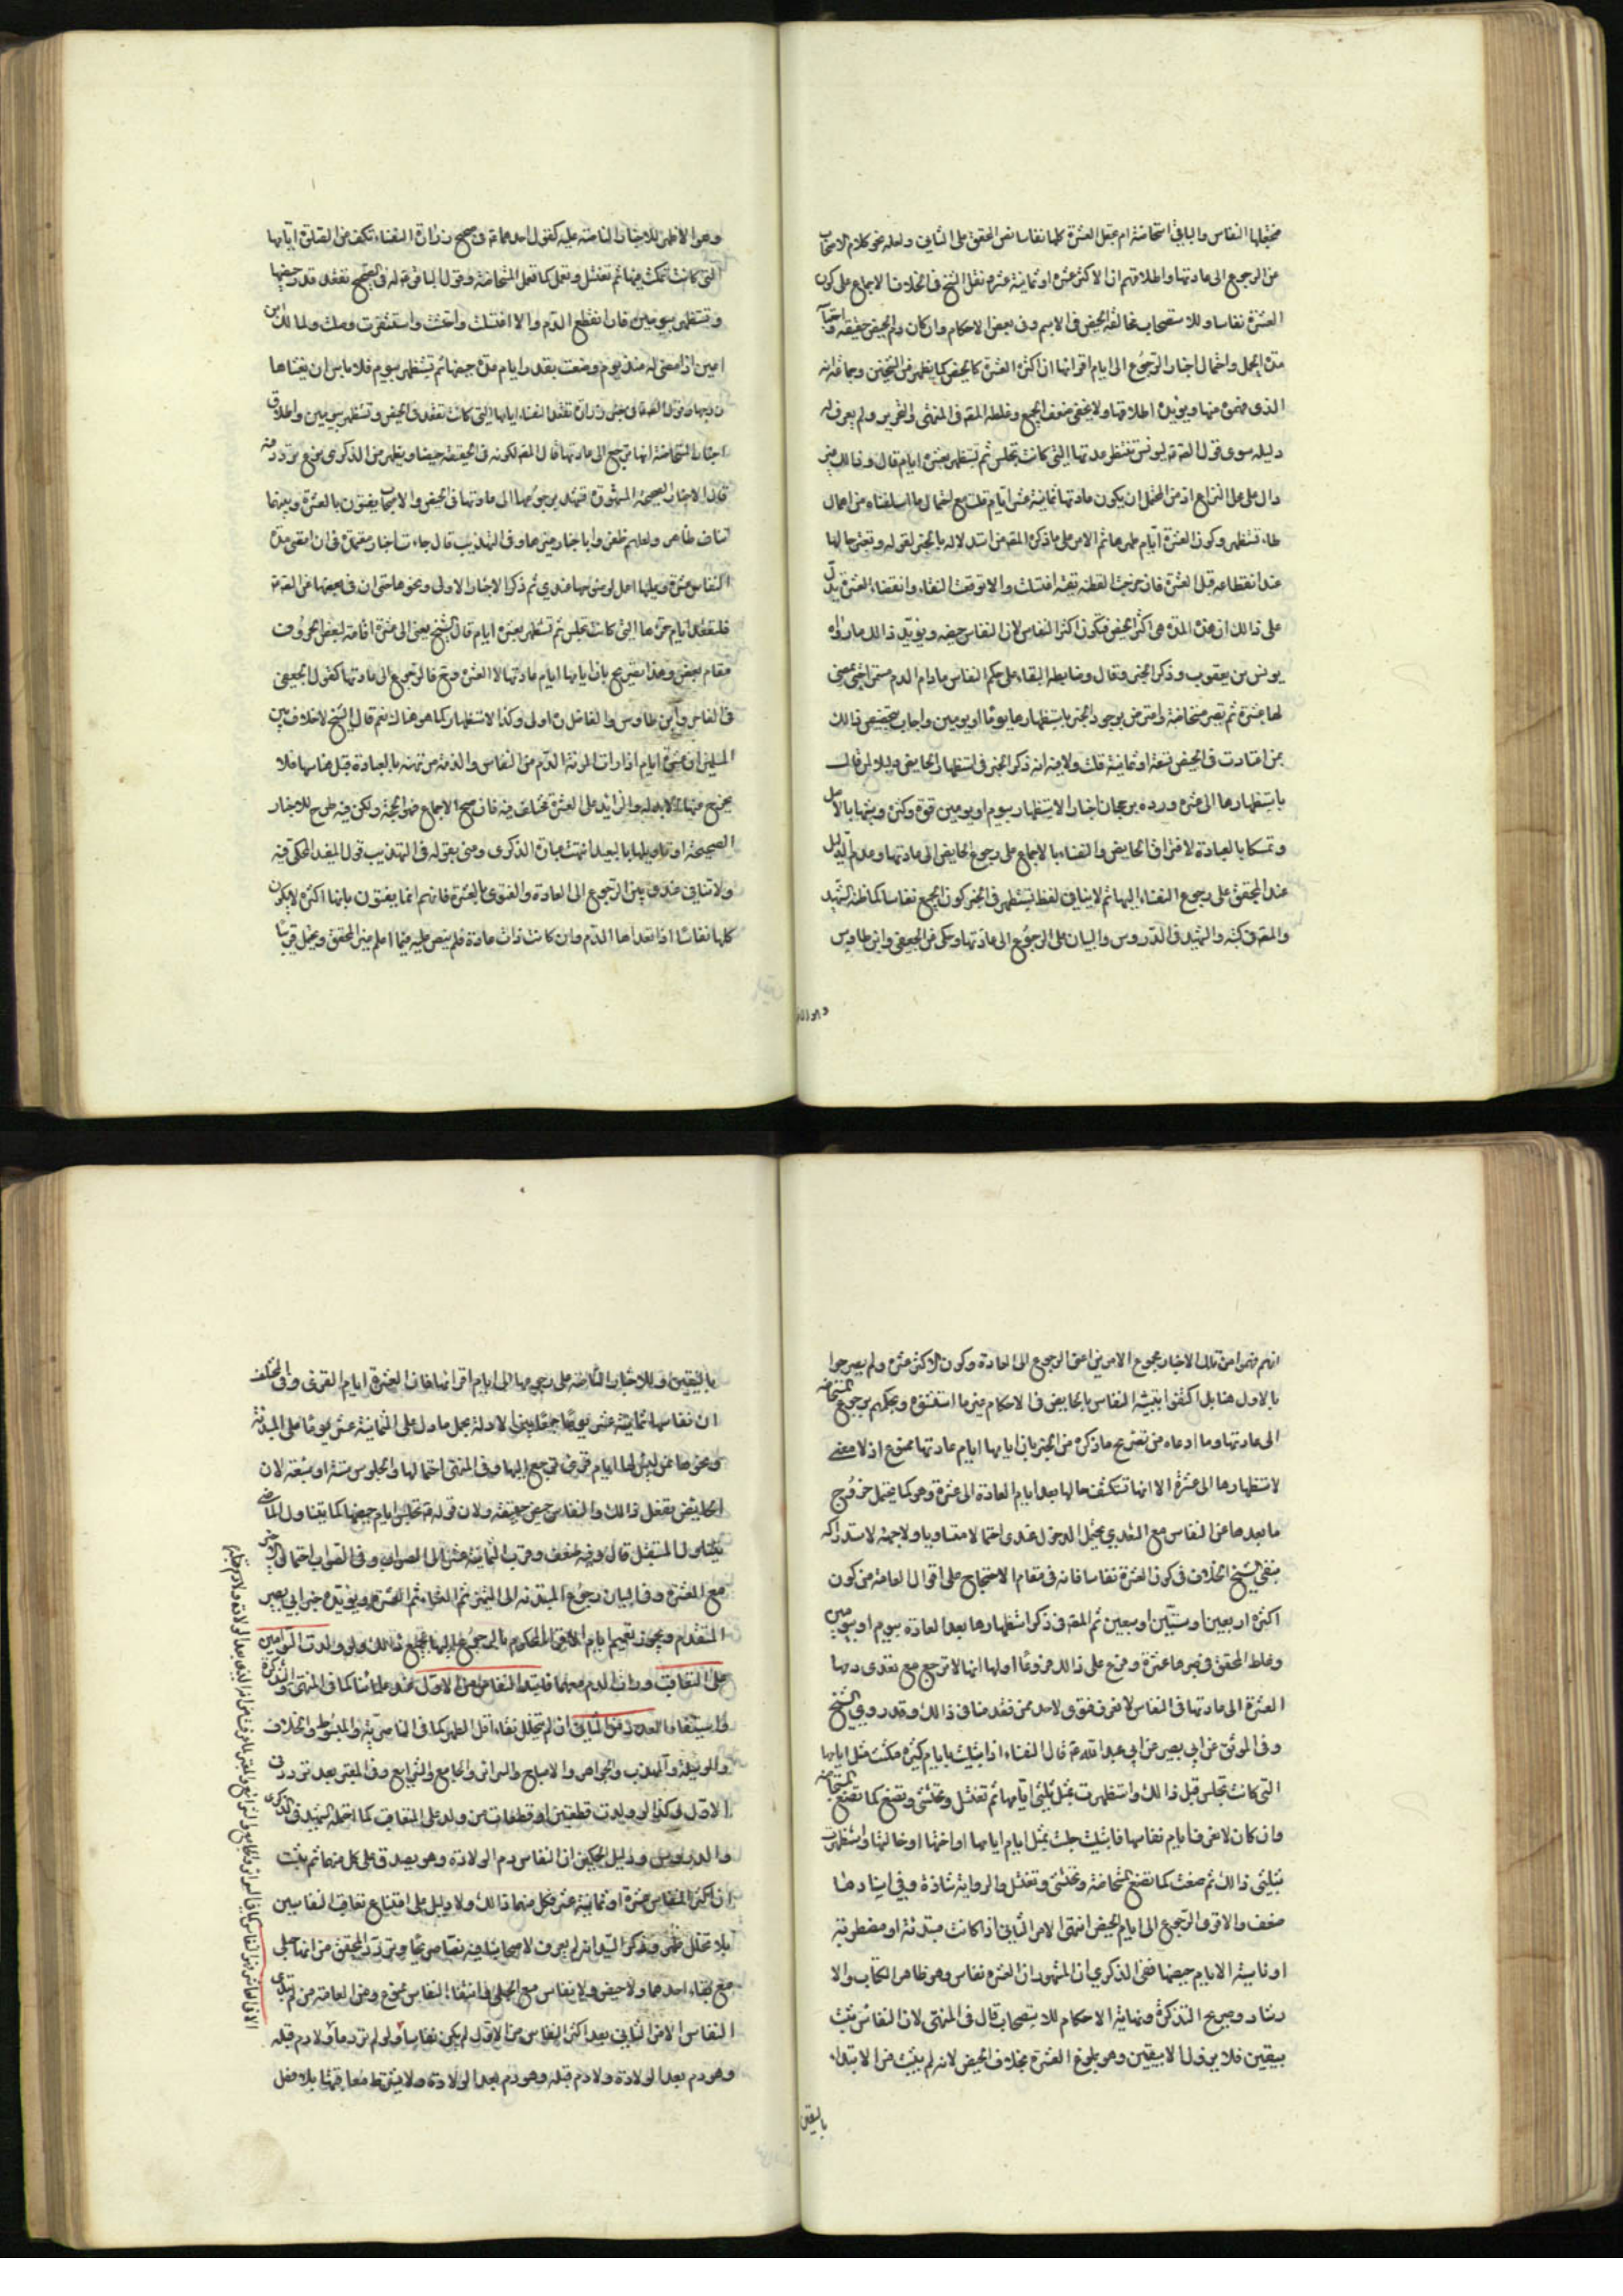 النفاس والباقي استحاضة ام يجعل العشرة كلها نفاسا نص المحقق على الثاني ولعله نحو كلام الاصحاب
من الرجوع الى عادتها واطلاقهم ان الاكثر عشرة او ثمانية عشر ونقل الشيخ في الخلاف الاجماع على كون
العشرة نفاسا وللاستصحاب بمخالفة الحيض في الاسم وفي بعض الاحكام وان كان دم الحيض حقيقة واحتبس
مدة الحمل واحتمال اخبار الرجوع الى ايام اقرائها ان اكثره العشرة كالحيض كما يظهر من الشيخين وجماعة
الذي فهموه منها ويؤيده اطلاقها ولا يخفى ضعف الجميع وغلطه المص في المنتهى والتحرير ولم يعرف له
دليلا سوى قول الصادق ع ليونس تنتظر عدتها التي كانت تجلس ثم تستظهر بعشرة ايام قال وذلك غير
دال على محل النزاع اذ من المحتمل ان يكون عادتها ثمانية ايام قلت مع احتمال ما اسلفناه من اهمال
طاء فتستظهر وكون العشرة ايام طهرها ثم الامر على ما ذكره المص من استدلاله بالخبر لقوله وتعتبر حالها
عند انقطاعه قبل العشرة فان خرجت القطنة نقية اغتسلت والا توقعت النقاء او انقضاء العشرة يدل
على ذلك ان هذه المدة هي اكثر الحيض فتكون اكثر النفاس لان النفاس حيضة ويؤيد ذلك ما رواه
يونس بن يعقوب وذكر الخبر وقال وضابطه البقاء على حكم النفاس ما دام الدم مستمرا حتى يمضي
لها عشرة ثم تصير مستحاضة واعترض بوجود الخبر باستظهارها يوما او يومين واجاب بتخصيص ذلك
بمن اعتادت في الحيض تسعة او ثمانية
باستظهارها الى عشرة ورده برجحان اخبار الاستظهار بيوم او يومين قوة وكثرة وبينها بالاصل
وتمسكا بالعبادة لافتراق الحائض والنفساء بالاجماع على رجوع الحايض الى عادتها وعدم الدليل
عند المحقق على رجوع النفساء اليها ثم لا ينافي لفظ تستظهر في الخبر كون الجميع نفاسا كما ظنه الشهيد
والمص في كتبه والشهيد في الدروس والبيان على الرجوع الى عادتها وحكى عن الجعفي وابن طاوس
وهو الاظهر للاخبار الناصة عليه كقول احدهما ع في صحيح زرارة النفساء تكف عن الصلوة ايامها
التي كانت تمكث فيها ثم تغتسل وتعمل كما تعمل المستحاضة وقول الباقر ع له في الصحيح تقعد قدر حيضها
وتستظهر بيومين فان انقطع الدم والا اغتسلت واحتشت واستثفرت وصلت ولمالك بن
اعين اذا مضى له منذ يوم وضعت بقدر ايام عدة حيضها ثم تستظهر بيوم فلا باس ان يغشاها
زوجها وقول الصادق ع في خبر زرارة تقعد النفساء ايامها التي كانت تقعد في الحيض وتستظهر بيومين واطلاق
اخبار المستحاضة انها ترجع الى عادتها قال المص لكونه في الحقيقة حيضا ويظهر من الذكرى نوع تردد فيه
قال الاخبار الصحيحة المشهورة تشهد برجوعها الى عادتها في الحيض والاصحاب يفتون بالعشرة وبينهما
تناف ظاهر ولعلهم ظفروا باخبار غيرها وفي التهذيب قال جاءت اخبار معتمدة في ان اقصى مدة
النفاس عشرة وعليها اعمل لوضوحها عندي ثم ذكر الاخبار الاولى ونحوها حتى ان في بعضها عن الصادق ع
فلتقعد ايام قرئها التي كانت تجلس ثم تستظهر بعشرة ايام قال الشيخ يعني الى عشرة اقامة لبعض الحروف
مقام بعض وهذا تصريح بان ايامها ايام عادتها لا العشرة وح فالرجوع الى عادتها كقول الجعفي
في الفاخر وابن طاوس والفاضل ره اولى وكذا الاستظهار كما هو هناك نعم قال الشيخ لا خلاف بين
المسلمين ان عشرة ايام اذا رات المرئة الدم من النفاس والذمة مرتهنة بالعبادة قبل نفاسها فلا
يخرج عنها الا بدلالة والزائد على العشرة مختلف فيه فان صح الاجماع فهو الحجة ولكن فيه طرح للاخبار
الصحيحة او تاويلها بالبعيد انتهت عبارة الذكرى وعنى بقوله في التهذيب قول المفيد المحكى فيه
ولا تنافي عندي بين الرجوع الى العادة والفتوى بالعشرة فانهم انما يفتون بانها اكثره لا بكون
كلها نفاسا اذا تعداها الدم وان كانت ذات عادة فلم ينص عليه فيما اعلم غير المحقق ويحتمل قريبا
وهو الا
انهم فهموا من تلك الاخبار مجموع الامرين اعني الرجوع الى العادة وكون الاكثر عشرة ولم يصرحوا
بالاول هنا بل اكتفوا بتشبيه النفاس بالحايض في الاحكام غير ما استثنوه وبحكمهم برجوع المستحاضة
الى عادتها وما ادعاه من تصريح ما ذكره من الخبر بان ايامها ايام عادتها ممنوع اذ لا معنى
لاستظهارها الى عشرة الا انها تستكشف حالها بعد ايام العادة الى عشرة وهو كما يحتمل خروج
ما بعدها عن النفاس مع التعدي يحتمل الدخول عندي احتمالا متساويا ولا جهة لاستدراكه
بنفي الشيخ الخلاف في كون العشرة نفاسا فانه في مقام الاحتجاج على اقوال العامة من كون
اكثره اربعين او ستين او سبعين ثم المص في ذكر استظهارها بعد العادة بيوم او يومين
وغلط المحقق في صبرها عشرة وفرع على ذلك فروعا اولها انها لا ترجع مع تعدى دمها
العشرة الى عادتها في النفاس لا نعرف فتوى لاحد ممن تقدمنا في ذلك وقد روى الشيخ
وفي الموثق عن ابي بصير عن ابي عبد الله ع قال النفساء اذا ابتليت بايام كثيرة مكثت مثل ايامها
التي كانت تجلس قبل ذلك واستظهرت بمثل ثلثي ايامها ثم تغتسل وتحتشي وتصنع كما تصنع المستحاضة
وان كان لا تعرف ايام نفاسها فابتليت جلست بمثل ايام امها او اختها او خالتها واستظهرت
بثلثي ذلك ثم صنعت كما تصنع المستحاضة وتحتشي وتغتسل والرواية شاذة وفي اسنادها
ضعف والاقرب الرجوع الى ايام الحيض انتهى الامر الثاني اذا كانت مبتدئة او مضطربة
او ناسية لايام حيضها ففي الذكرى ان المشهور ان العشرة نفاس وهو ظاهر الكتاب والا
رشاد وصريح التذكرة ونهاية الاحكام للاستصحاب قال في المنتهى لان النفاس ثبت
بيقين فلا يزول الا بيقين وهو بلوغ العشرة بخلاف الحيض لانه لم يثبت من الابتداء
باليقين
باليقين وللاخبار الناصة على رجوعها الى ايام اقرائها فان العشرة ايام القرء وفي المختلف
ان نفاسها ثمانية عشر يوما جمعا بين الادلة بحمل ما دل على الثمانية عشر يوما على المبتدئة
ونحوها ممن ليس لها ايام قرء فترجع اليها وفي المنتهى احتمالها والجلوس ستة او سبعة لان
الحائض تفعل ذلك والنفاس حيض حقيقة ولان قوله ع تجلس ايام حيضها كما يتناول الماضي
يتناول المستقبل قال وفيه ضعف وقرب الثمانية عشر الى الصواب وفي الصواب احتمال
مع العشرة وفي البيان رجوع المبتدئة الى التميز ثم النساء ثم العشرة ويؤيده خبر ابي بصير
المتقدم ويجوز تعميم ايام الاقراء المحكوم بالرجوع اليها لجميع ذلك ولو ولدت التوامين
على التعاقب ورات الدم معهما فابتداء النفاس من الاول عند علمائنا كما في المنتهى والتذكرة
واستيفاء العدد من الثاني ان لم يتخلل نقاء اقل الطهر كما في الناصرية والمبسوط والخلاف
والوسيلة والمهذب والجواهر والاصباح والسرائر والجامع والشرايع وفي المعتبر بعد تردد في
الاول وكذا لو ولدت قطعتين او قطعات من ولد على التعاقب كما احتمله الشهيد في الذكرى
والدروس ودليل الحكمين ان النفاس دم الولادة وهو يصدق على كل منهما ثم يثبت
ان اكثر النفاس عشرة او ثمانية عشر فكل منهما ذلك ولا دليل على امتناع تعاقب النفاسين
بلا تخلل طهر وذكر السيد انه لم يعرف لاصحابنا فيه نصا صريحا وتردد المحقق من انها حبلى
مع بقاء احدهما ولا حيض ولا نفاس مع الحبل وانتفاء النفاس ممنوع ومن العامة من ابتدى
النفاس الا من الثاني بعد اكثر النفاس من الاول لم يكن نفاسا ولو لم تر دما ولا دم قبله
وهو دم بعد الولادة ولا دم قبله وهو دم بعد الولادة ولا يشترط تعاقبهما بلا فصل